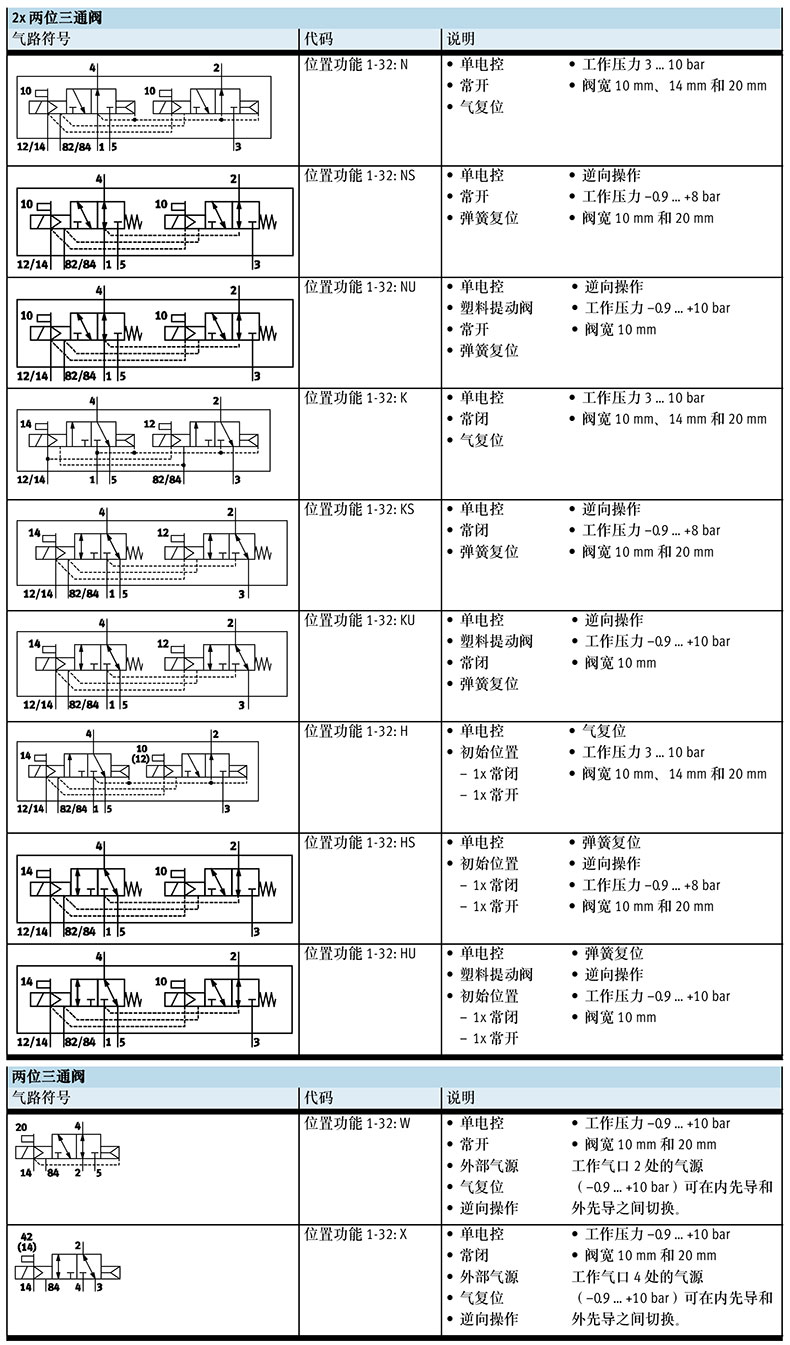 2x 两位三通阀
气路符号 代码 说明
4 2
10 10
12/14 82/84 1 5 3
位置功能 1-32: N
• 单电控
• 常开
• 气复位
• 工作压力 3 ... 10 bar
• 阀宽 10 mm、14 mm 和 20 mm
4 2
10 10
12/14 82/84 1 5 3
位置功能 1-32: NS
• 单电控
• 常开
• 弹簧复位
• 逆向操作
• 工作压力 –0.9 ... +8 bar
• 阀宽 10 mm 和 20 mm
4 2
10 10
12/14 82/84 1 5 3
位置功能 1-32: NU
• 单电控
• 塑料提动阀
• 常开
• 弹簧复位
• 逆向操作
• 工作压力 –0.9 ... +10 bar
• 阀宽 10 mm
4 2
14 12
12/14 1 5 82/84 3
位置功能 1-32: K
• 单电控
• 常闭
• 气复位
• 工作压力 3 ... 10 bar
• 阀宽 10 mm、14 mm 和 20 mm
4 2
14 12
12/14 82/84 1 5 3
位置功能 1-32: KS
• 单电控
• 常闭
• 弹簧复位
• 逆向操作
• 工作压力 –0.9 ... +8 bar
• 阀宽 10 mm 和 20 mm
4 2
14 12
12/14 82/84 1 5 3
位置功能 1-32: KU
• 单电控
• 塑料提动阀
• 常闭
• 弹簧复位
• 逆向操作
• 工作压力 –0.9 ... +10 bar
• 阀宽 10 mm
4 2
14 10
(12)
12/14 82/84 1 5 3
位置功能 1-32: H
• 单电控
• 初始位置
– 1x 常闭
– 1x 常开
• 气复位
• 工作压力 3 ... 10 bar
• 阀宽 10 mm、14 mm 和 20 mm
4 2
14 10
12/14 82/84 1 5 3
位置功能 1-32: HS
• 单电控
• 初始位置
– 1x 常闭
– 1x 常开
• 弹簧复位
• 逆向操作
• 工作压力 –0.9 ... +8 bar
• 阀宽 10 mm 和 20 mm
4 2
14 10
12/14 82/84 1 5 3
位置功能 1-32: HU
• 单电控
• 塑料提动阀
• 初始位置
– 1x 常闭
– 1x 常开
• 弹簧复位
• 逆向操作
• 工作压力 –0.9 ... +10 bar
• 阀宽 10 mm
两位三通阀
气路符号 代码 说明
20 4
14 84 2 5
位置功能 1-32: W
• 单电控
• 常开
• 外部气源
• 气复位
• 逆向操作
• 工作压力 –0.9 ... +10 bar
• 阀宽 10 mm 和 20 mm
工作气口 2 处的气源
（–0.9 ... +10 bar）可在内先导和
外先导之间切换。
42
(14) 2
14 84 4 3
位置功能 1-32: X
• 单电控
• 常闭
• 外部气源
• 气复位
• 逆向操作
• 工作压力 –0.9 ... +10 bar
• 阀宽 10 mm 和 20 mm
工作气口 4 处的气源
（–0.9 ... +10 bar）可在内先导和
外先导之间切换。